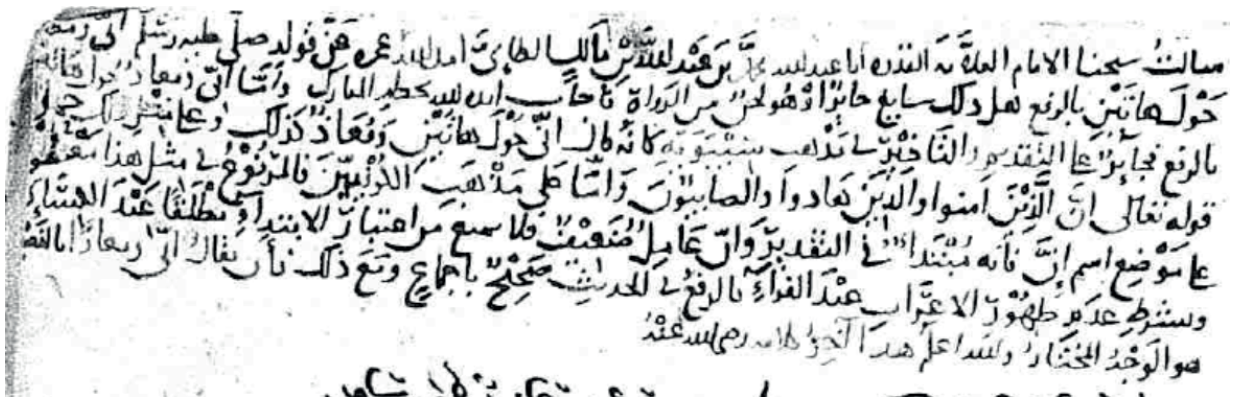 سالت شيخنا الامام العلامة القدوة ابا عبد الله محمد بن عبد الله بن مالك الطائي امد الله عمره عن قوله صلى عليه وسلم اني ومعاذ
حول هاتين بالرفع هل ذلك سايغ جائزا وهو لحن من الرواة فاجاب ايده الله بخطه المبارك واما اني ومعاذ حول هاتين
بالرفع فجائز على التقديم والتاخير في مذهب سيبويه كانه قال اني حول هاتين ومعاذ كذلك وعلى مثل ذلك حمل
قوله تعالى ان الذين امنوا والذين هادوا والصابيون واما على مذهب الكوفيين فالمرفوع في مثل هذا معطوف
على موضع اسم ان فانه مبتدا في التقدير وان عامل ضعيف فلا يمنع من اعتبار الابتداء مطلقا عند الكسائي
وبشرط عدم ظهور الاعراب عند الفراء فالرفع في الحديث صحيح باجماع ومع ذلك فان يقال اني ومعاذا بالنصب
هو الوجه المختار والله اعلم هذا آخر كلامه رضي الله عنه